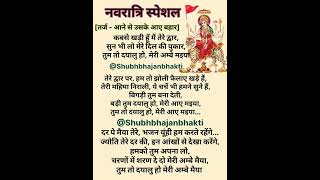 नवरात्रि स्पेशल
[तर्ज - आने से उसके आए बहार]
कबसे खड़ी हूँ मैं तेरे द्वार,
सुन भी लो मेरे दिल की पुकार,
तुम तो दयालु हो, मेरी अम्बे मइया
@Shubhbhajanbhakti
तेरे द्वार पर, हम तो झोली फैलाए खड़े हैं,
तेरी महिमा निराली, ये चर्चे भी हमने सुने हैं,
बिगड़ी तुम बना देती,
बड़ी तुम दयालु हो, मेरी आए मइया,
तुम तो दयालु हो, मेरी आए मइया...
@Shubhbhajanbhakti
दर पे मैया तेरे, भजन यूंही हम करते रहेंगे...
ज्योति तेरे दर की, इन आंखों से देखा करेंगे,
हमको तुम अपना लो,
चरणों में शरण दे दो मेरी अम्बे मैया,
तुम तो दयालु हो मेरी अम्बे मैया